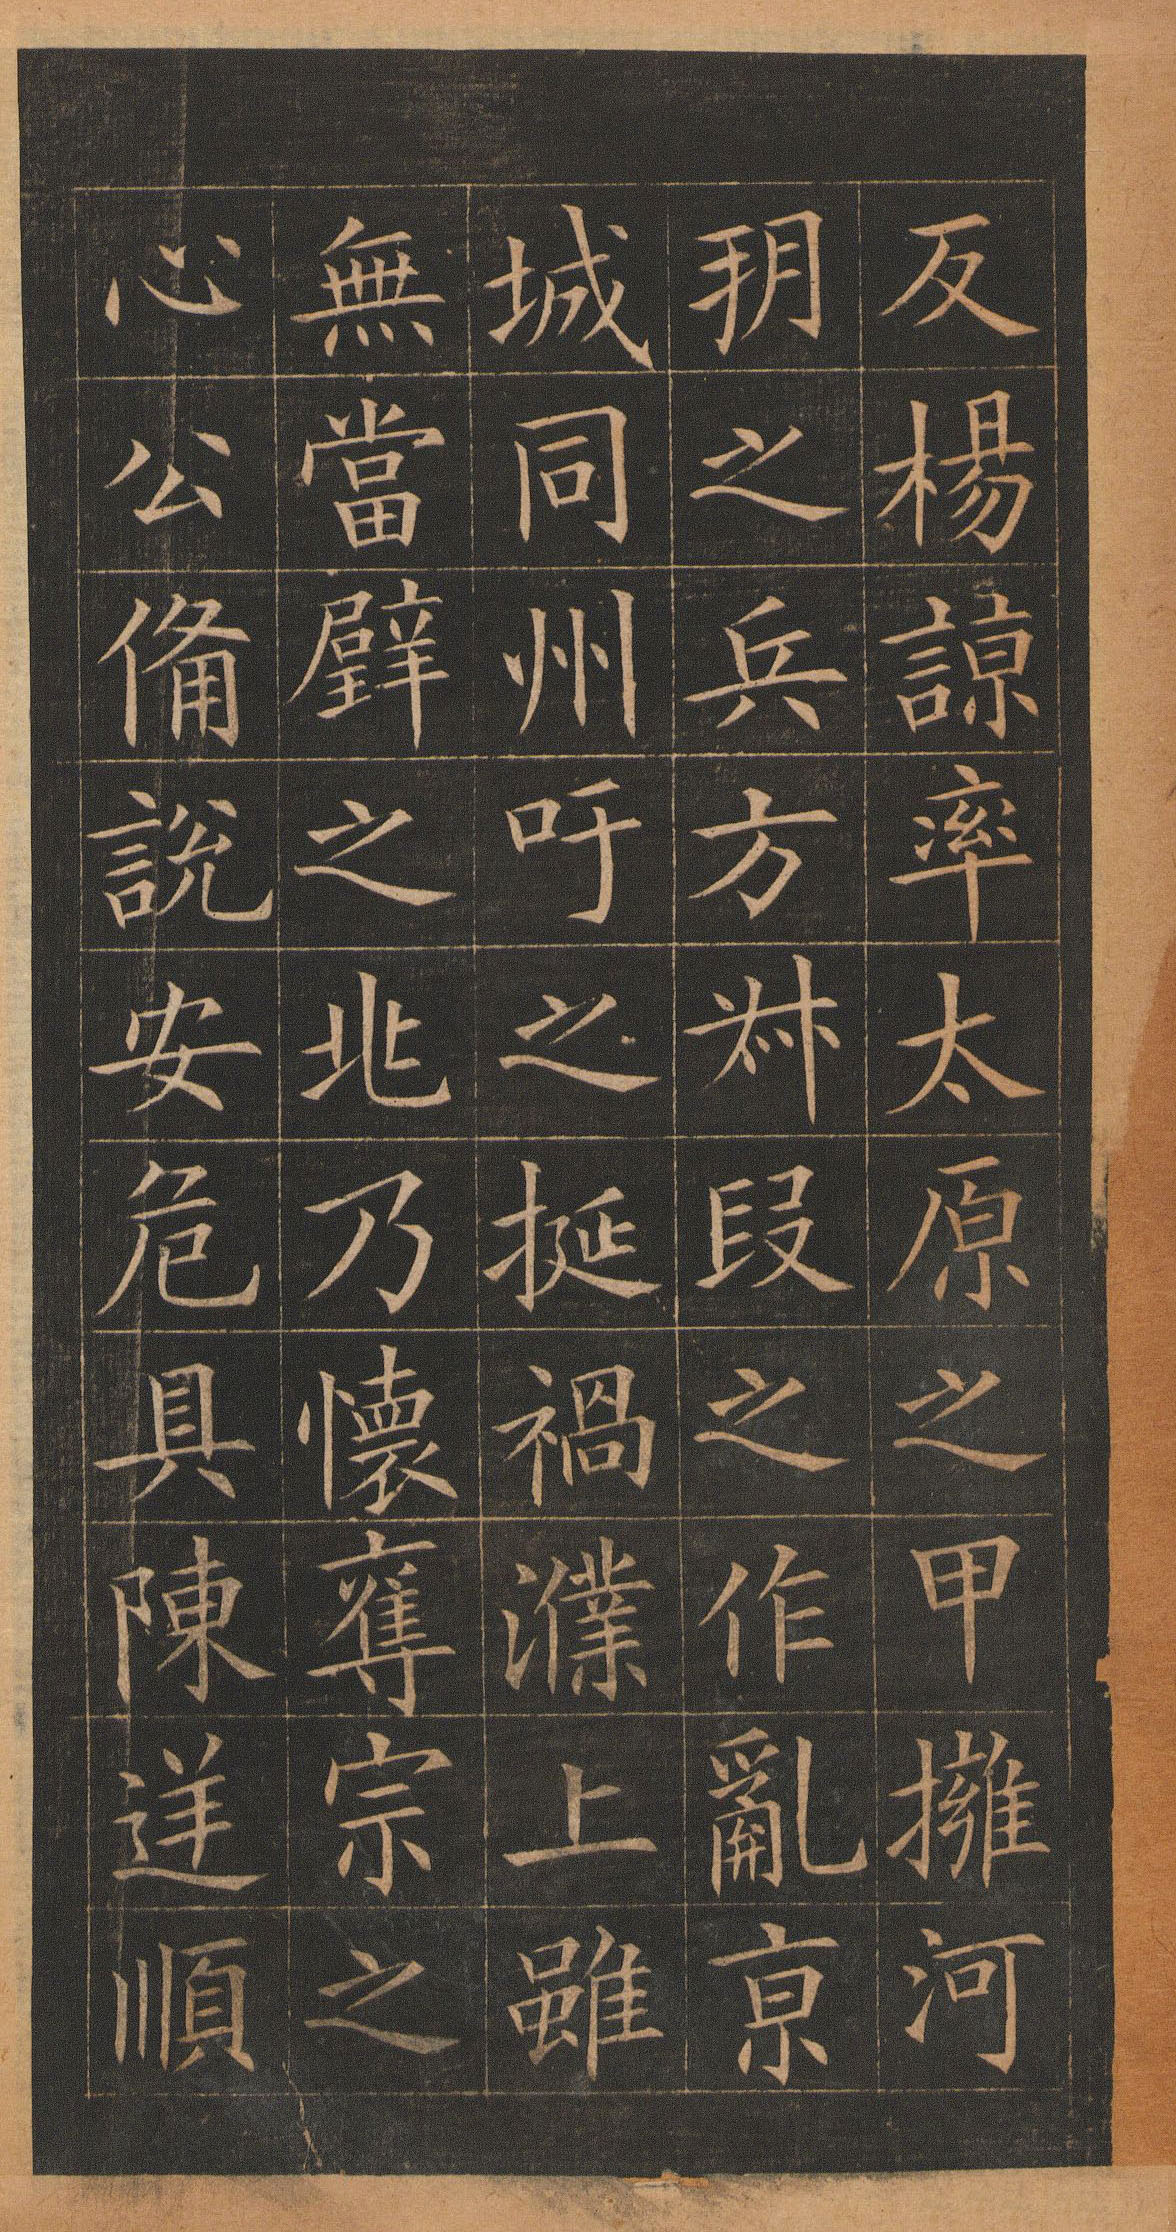 反楊諒率太原之甲擁河
玥之兵方叔段之作亂京
城同州吁之挻禍濮上雖
無當璧之兆乃懷奪宗之
心公備說安危具陳逆順